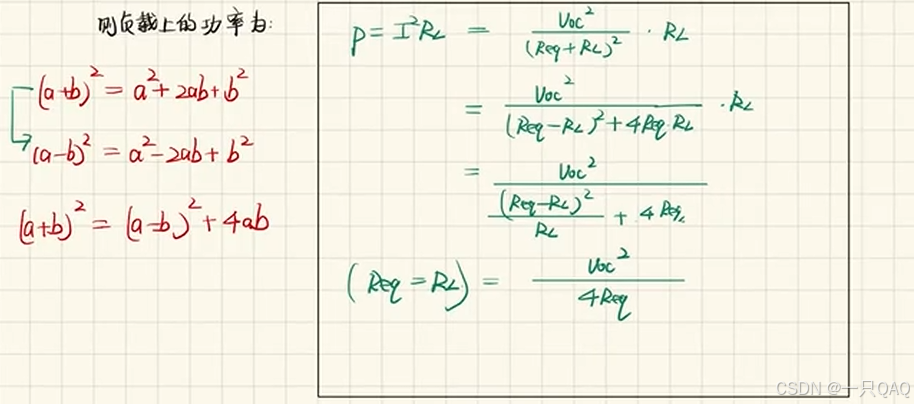 则负载上的功率为:
(a+b)² = a²+2ab+b²
(a-b)² = a²-2ab+b²
(a+b)² = (a-b)²+4ab
P = I²RL = Uoc² / (Req+RL)² · RL
= Uoc² / ((Req-RL)²+4Req·RL) · RL
= Uoc² / ((Req-RL)² / RL + 4Req)
(Req = RL) = Uoc² / 4Req
CSDN @一只QAQ